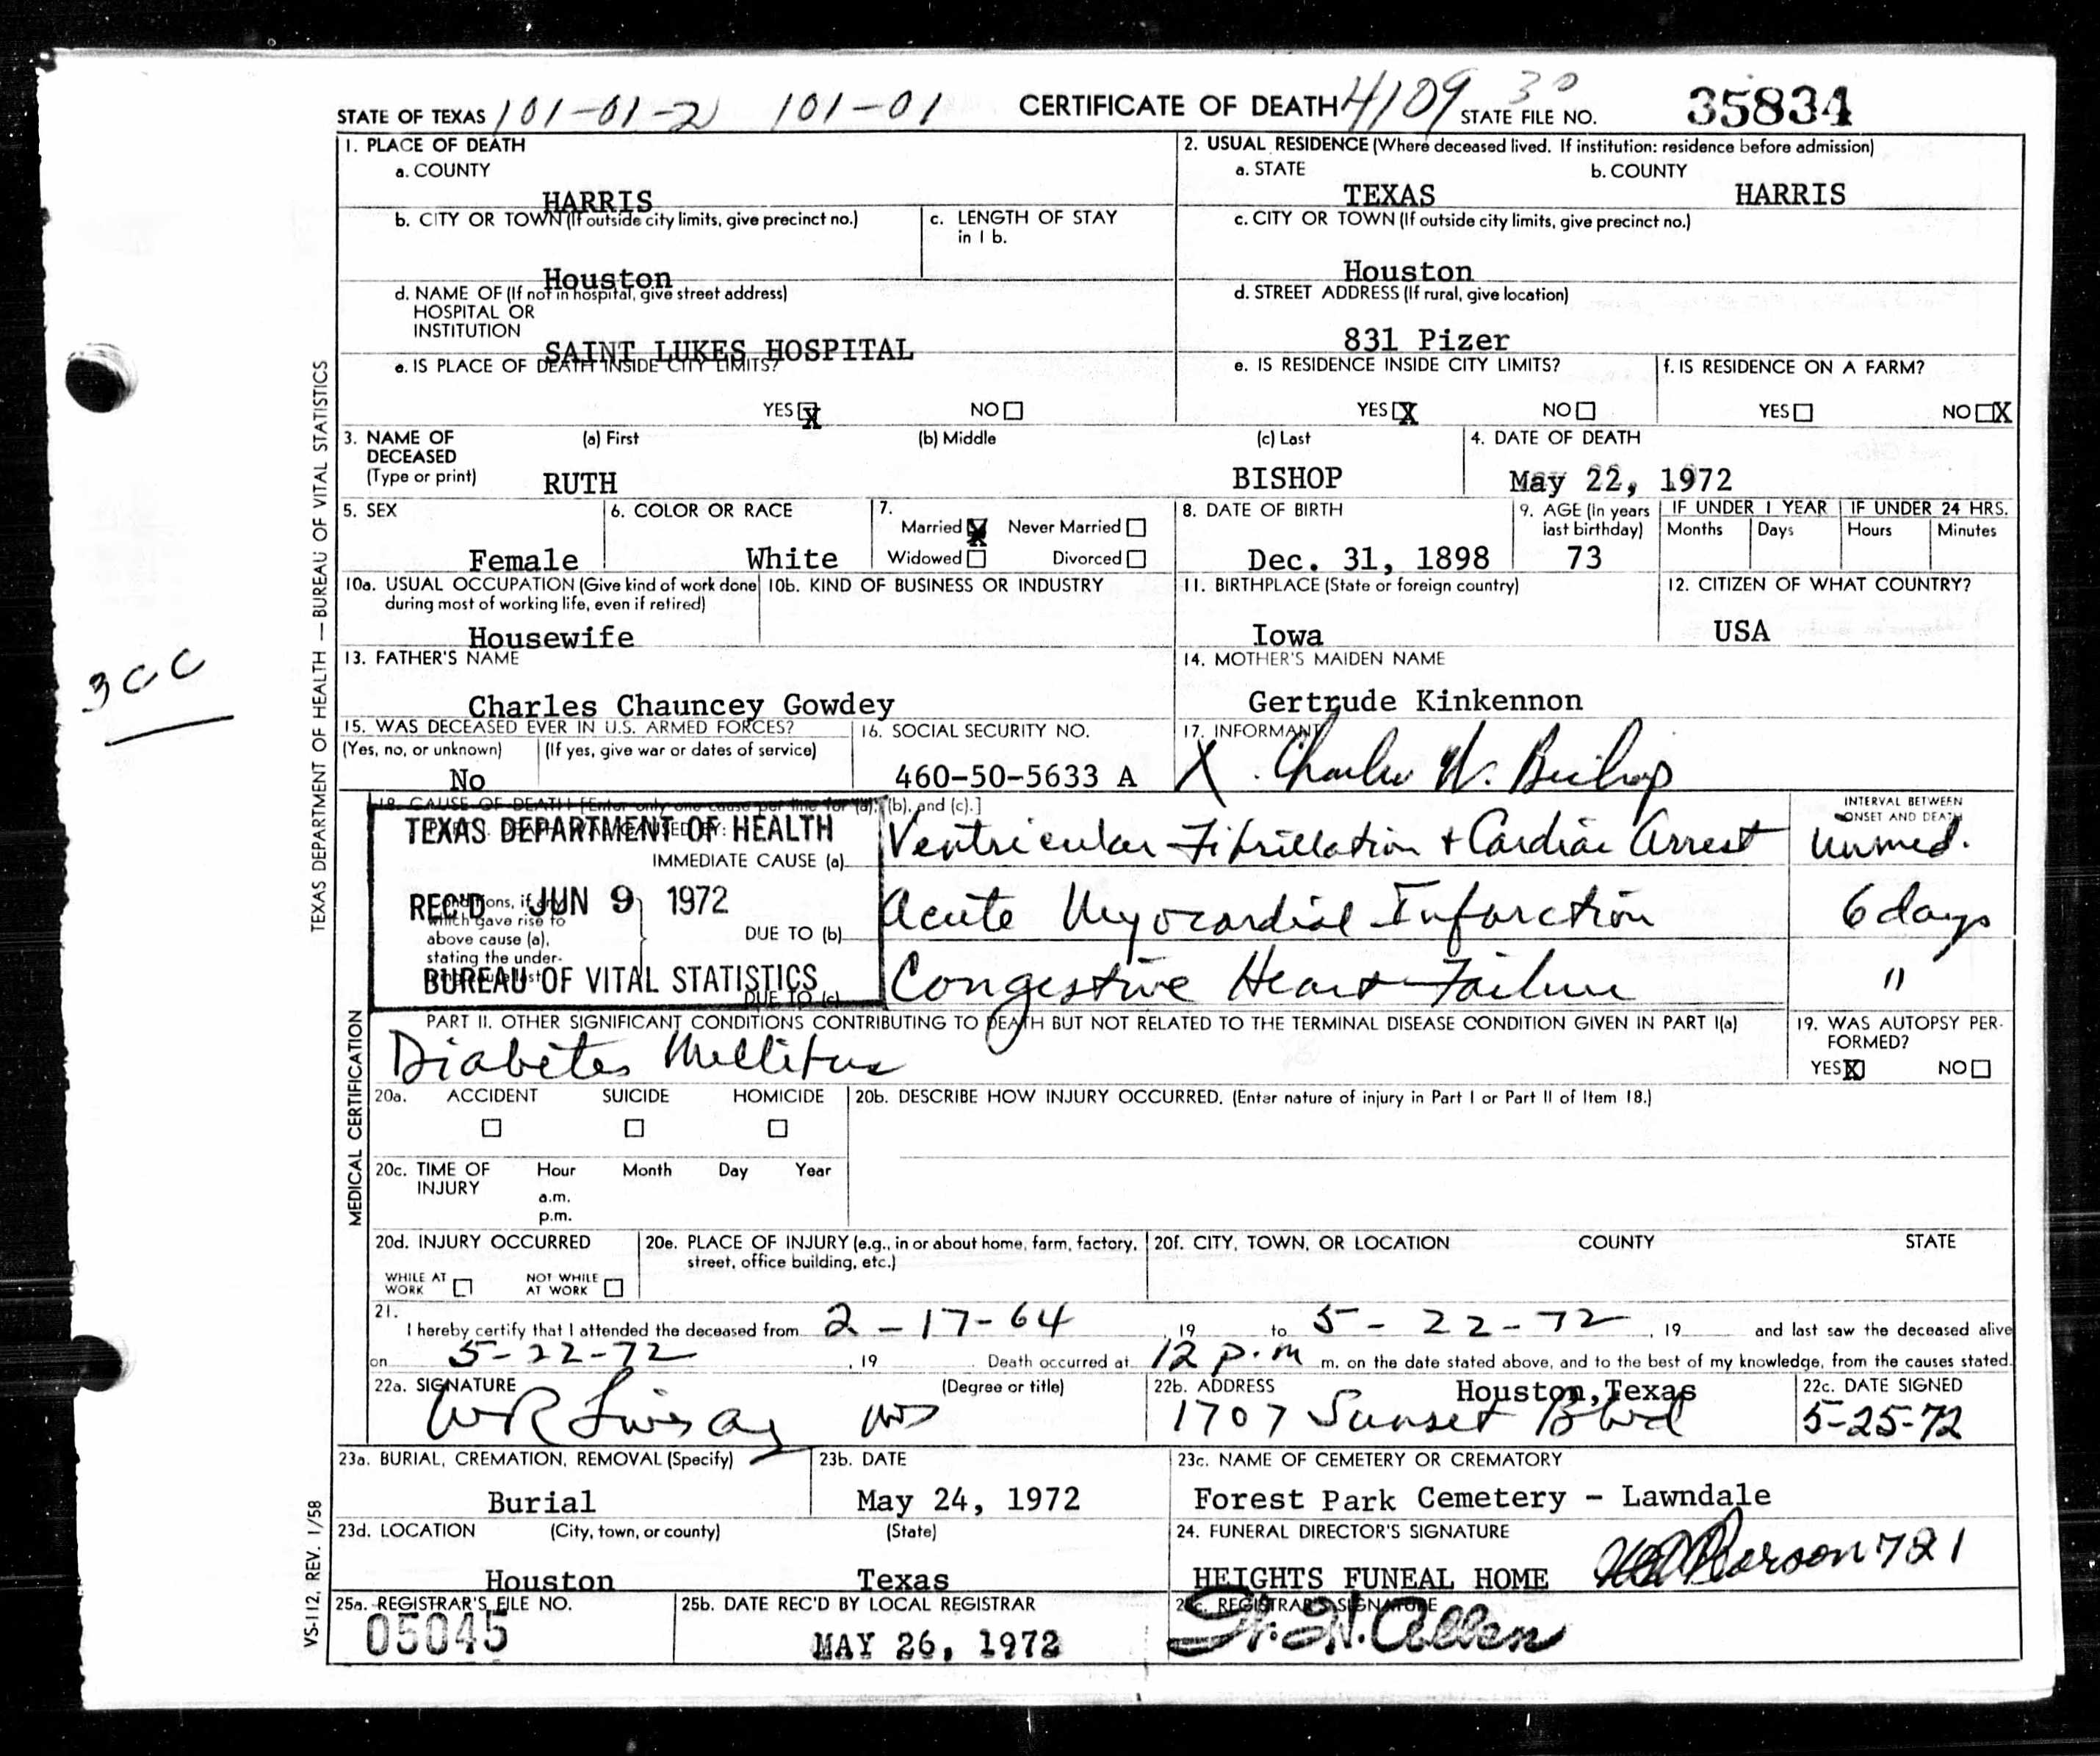 STATE OF TEXAS 101-01-2 101-01 CERTIFICATE OF DEATH 4109 30 STATE FILE NO. 35834
1. PLACE OF DEATH
a. COUNTY
HARRIS
2. USUAL RESIDENCE (Where deceased lived. If institution: residence before admission)
a. STATE b. COUNTY
TEXAS HARRIS
b. CITY OR TOWN (If outside city limits, give precinct no.)
Houston
c. LENGTH OF STAY
in 1 b.
c. CITY OR TOWN (If outside city limits, give precinct no.)
Houston
d. NAME OF (If not in hospital, give street address)
HOSPITAL OR
INSTITUTION
SAINT LUKES HOSPITAL
d. STREET ADDRESS (If rural, give location)
831 Pizer
e. IS PLACE OF DEATH INSIDE CITY LIMITS?
YES X NO
e. IS RESIDENCE INSIDE CITY LIMITS?
YES X NO
f. IS RESIDENCE ON A FARM?
YES NO X
3. NAME OF
DECEASED
(Type or print)
(a) First (b) Middle (c) Last
RUTH BISHOP
4. DATE OF DEATH
May 22, 1972
5. SEX
Female
6. COLOR OR RACE
White
7.
Married X Never Married
Widowed Divorced
8. DATE OF BIRTH
Dec. 31, 1898
9. AGE (in years
last birthday)
73
IF UNDER 1 YEAR
Months Days
IF UNDER 24 HRS.
Hours Minutes
10a. USUAL OCCUPATION (Give kind of work done
during most of working life, even if retired)
Housewife
10b. KIND OF BUSINESS OR INDUSTRY
11. BIRTHPLACE (State or foreign country)
Iowa
12. CITIZEN OF WHAT COUNTRY?
USA
13. FATHER'S NAME
Charles Chauncey Gowdey
14. MOTHER'S MAIDEN NAME
Gertrude Kinkennon
15. WAS DECEASED EVER IN U.S. ARMED FORCES?
(Yes, no, or unknown) (If yes, give war or dates of service)
No
16. SOCIAL SECURITY NO.
460-50-5633 A
17. INFORMANT
X Charles W. Bishop
18. CAUSE OF DEATH [Enter only one cause per line for (a), (b), and (c).]
TEXAS DEPARTMENT OF HEALTH
REC'D JUN 9 1972
BUREAU OF VITAL STATISTICS
IMMEDIATE CAUSE (a) Ventricular Fibrillation + Cardiac Arrest
INTERVAL BETWEEN
ONSET AND DEATH
Conditions, if any
which gave rise to
above cause (a),
stating the under-
DUE TO (b) Acute Myocardial Infarction 6 days
DUE TO (c) Congestive Heart Failure "
PART II. OTHER SIGNIFICANT CONDITIONS CONTRIBUTING TO DEATH BUT NOT RELATED TO THE TERMINAL DISEASE CONDITION GIVEN IN PART I(a)
Diabetes Mellitus
19. WAS AUTOPSY PER-
FORMED?
YES X NO
20a. ACCIDENT SUICIDE HOMICIDE
20b. DESCRIBE HOW INJURY OCCURRED. (Enter nature of injury in Part I or Part II of Item 18.)
20c. TIME OF
INJURY
Hour Month Day Year
a.m.
p.m.
20d. INJURY OCCURRED
WHILE AT
WORK
NOT WHILE
AT WORK
20e. PLACE OF INJURY (e.g., in or about home, farm, factory,
street, office building, etc.)
20f. CITY, TOWN, OR LOCATION COUNTY STATE
21.
I hereby certify that I attended the deceased from 2-17-64, 19 to 5-22-72, 19 and last saw the deceased alive
on 5-22-72, 19 Death occurred at 12 p.m m. on the date stated above, and to the best of my knowledge, from the causes stated.
22a. SIGNATURE (Degree or title)
MD
22b. ADDRESS
Houston, Texas
1707 Sunset Blvd
22c. DATE SIGNED
5-25-72
23a. BURIAL, CREMATION, REMOVAL (Specify)
Burial
23b. DATE
May 24, 1972
23c. NAME OF CEMETERY OR CREMATORY
Forest Park Cemetery - Lawndale
23d. LOCATION (City, town, or county) (State)
Houston Texas
24. FUNERAL DIRECTOR'S SIGNATURE
HEIGHTS FUNEAL HOME 721
25a. REGISTRAR'S FILE NO.
05045
25b. DATE REC'D BY LOCAL REGISTRAR
MAY 26, 1972
25c. REGISTRAR'S SIGNATURE
Allen
TEXAS DEPARTMENT OF HEALTH — BUREAU OF VITAL STATISTICS
MEDICAL CERTIFICATION
VS-112, REV. 1/58
3CC